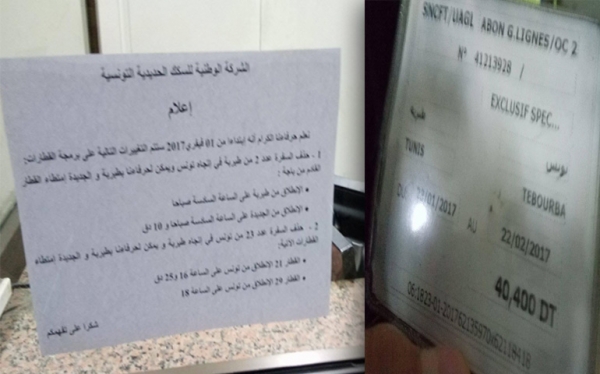 الشركة الوطنية للسكك الحديدية التونسية
إعلام
نعلم حرفاءنا الكرام أنه إبتداءا من 01 فيفري 2017 ستتم التغييرات التالية على برمجة القطارات:
1 - حذف السفرة عدد 2 من طبرية في إتجاه تونس ويمكن لحرفاءنا بطبرية و الجديدة إمتطاء القطار
القادم من باجة:
• الإطلاق من طبرية على الساعة السادسة صباحا
• الإطلاق من الجديدة على الساعة السادسة صباحا و 10 دق
2 - حذف السفرة عدد 23 من تونس في إتجاه طبرية و يمكن لحرفاءنا بطبرية و الجديدة إمتطاء
القطارات الآتية:
• القطار 21 الإطلاق من تونس على الساعة 16 و 25 دق
• القطار 20 الإطلاق من تونس على الساعة 18
شكرا على تفهمكم
SNCFT/UAGL ABON G.LIGNES/OC 2
N° 41213928 /
EXCLUSIF SPEC...
طبربة تونس
TUNIS TEBOURBA
DU 22/01/2017 AU 22/02/2017
40,400 DT